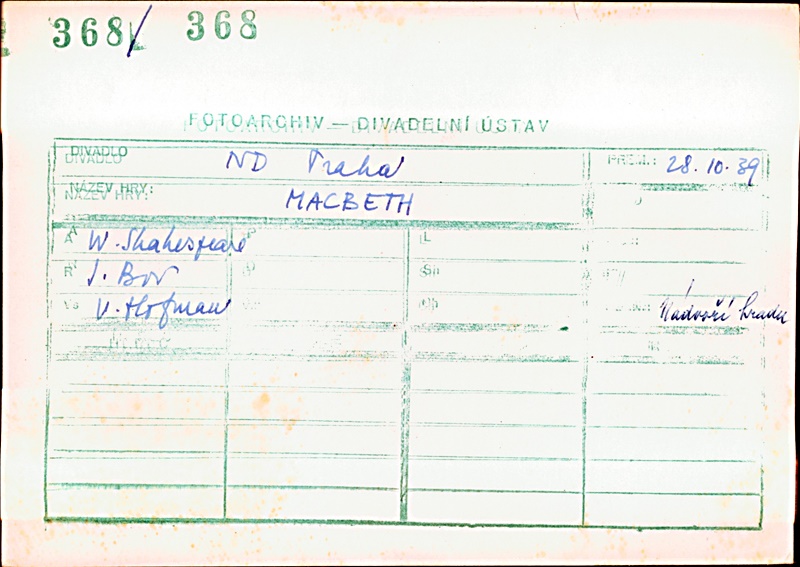 368/ 368
FOTOARCHIV — DIVADELNÍ ÚSTAV
DIVADLO ND Praha PREM.: 28.10.39
NÁZEV HRY: MACBETH
A W. Shakespeare L
R J. Bor
Vs V. Hofman Nádvoří hradu